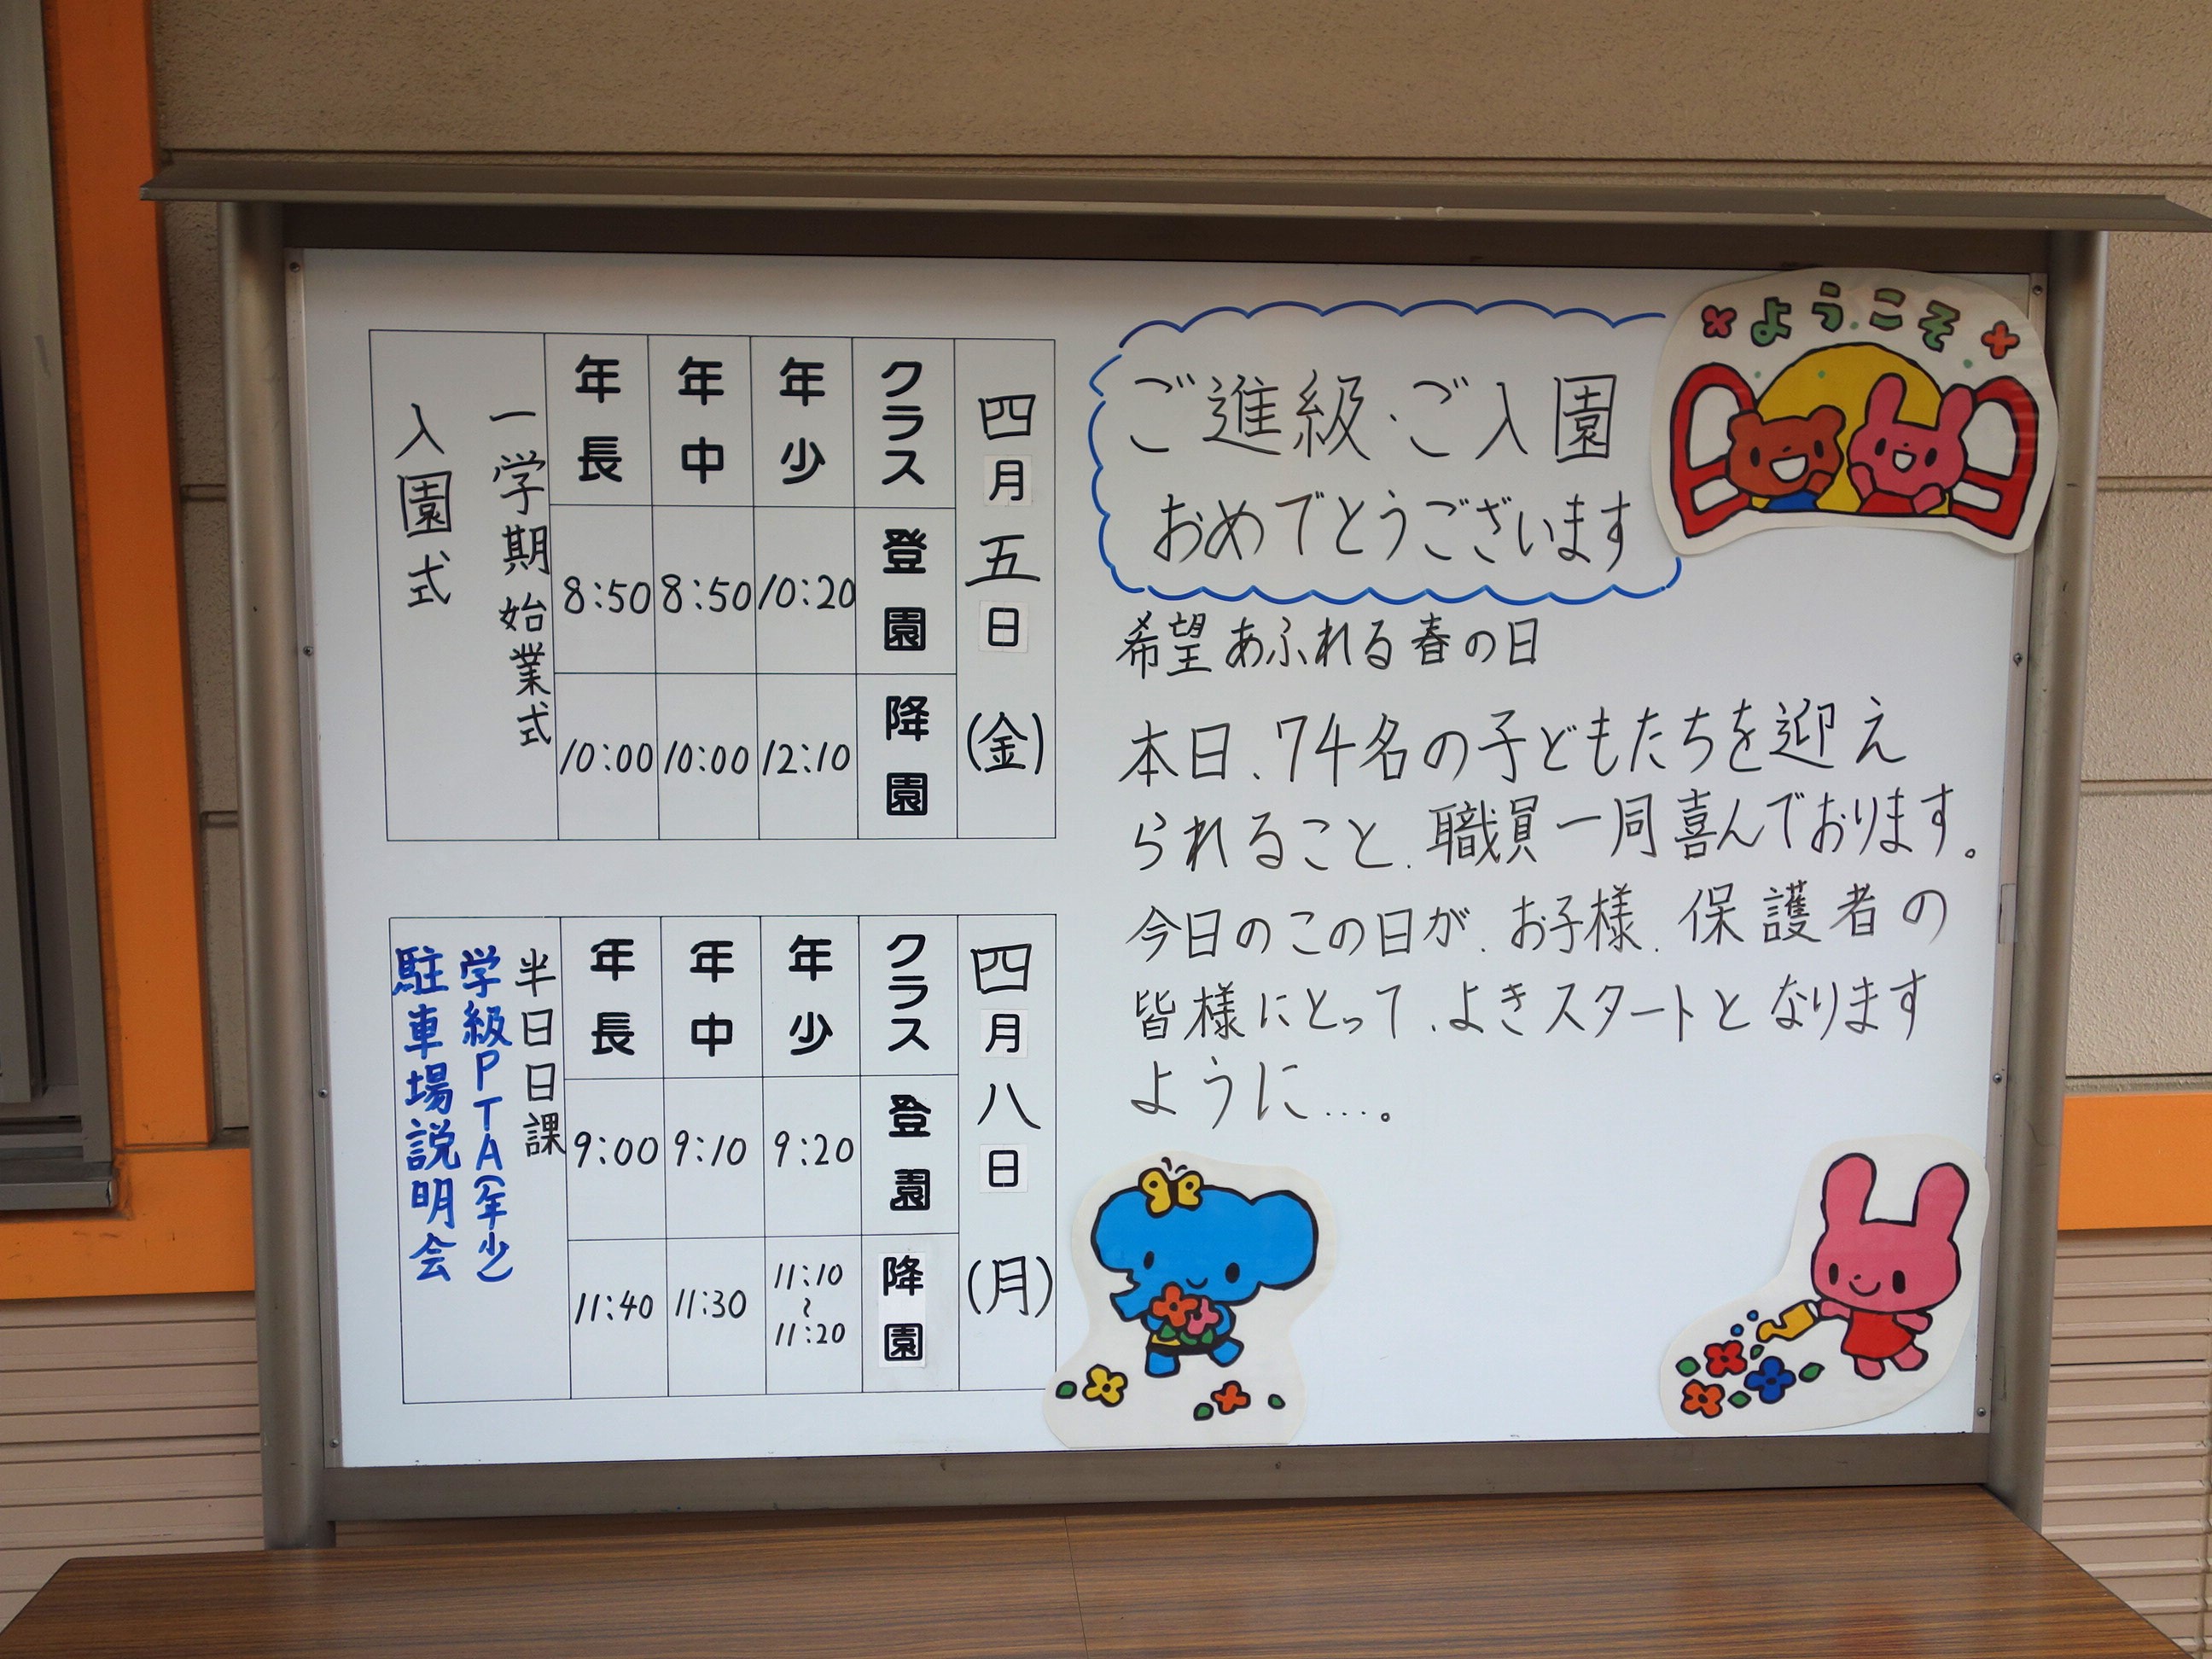 ようこそ
ご進級・ご入園
おめでとうございます
希望あふれる春の日
本日、74名の子どもたちを迎え
られること、職員一同喜んでおります。
今日のこの日が、お子様、保護者の
皆様にとって、よきスタートとなります
ように…。
四月五日(金)
クラス 登園 降園
年少 10:20 12:10
年中 8:50 10:00
年長 8:50 10:00
一学期始業式
入園式
四月八日(月)
クラス 登園 降園
年少 9:20 11:10～11:20
年中 9:10 11:30
年長 9:00 11:40
半日日課
学級PTA(年少)
駐車場説明会